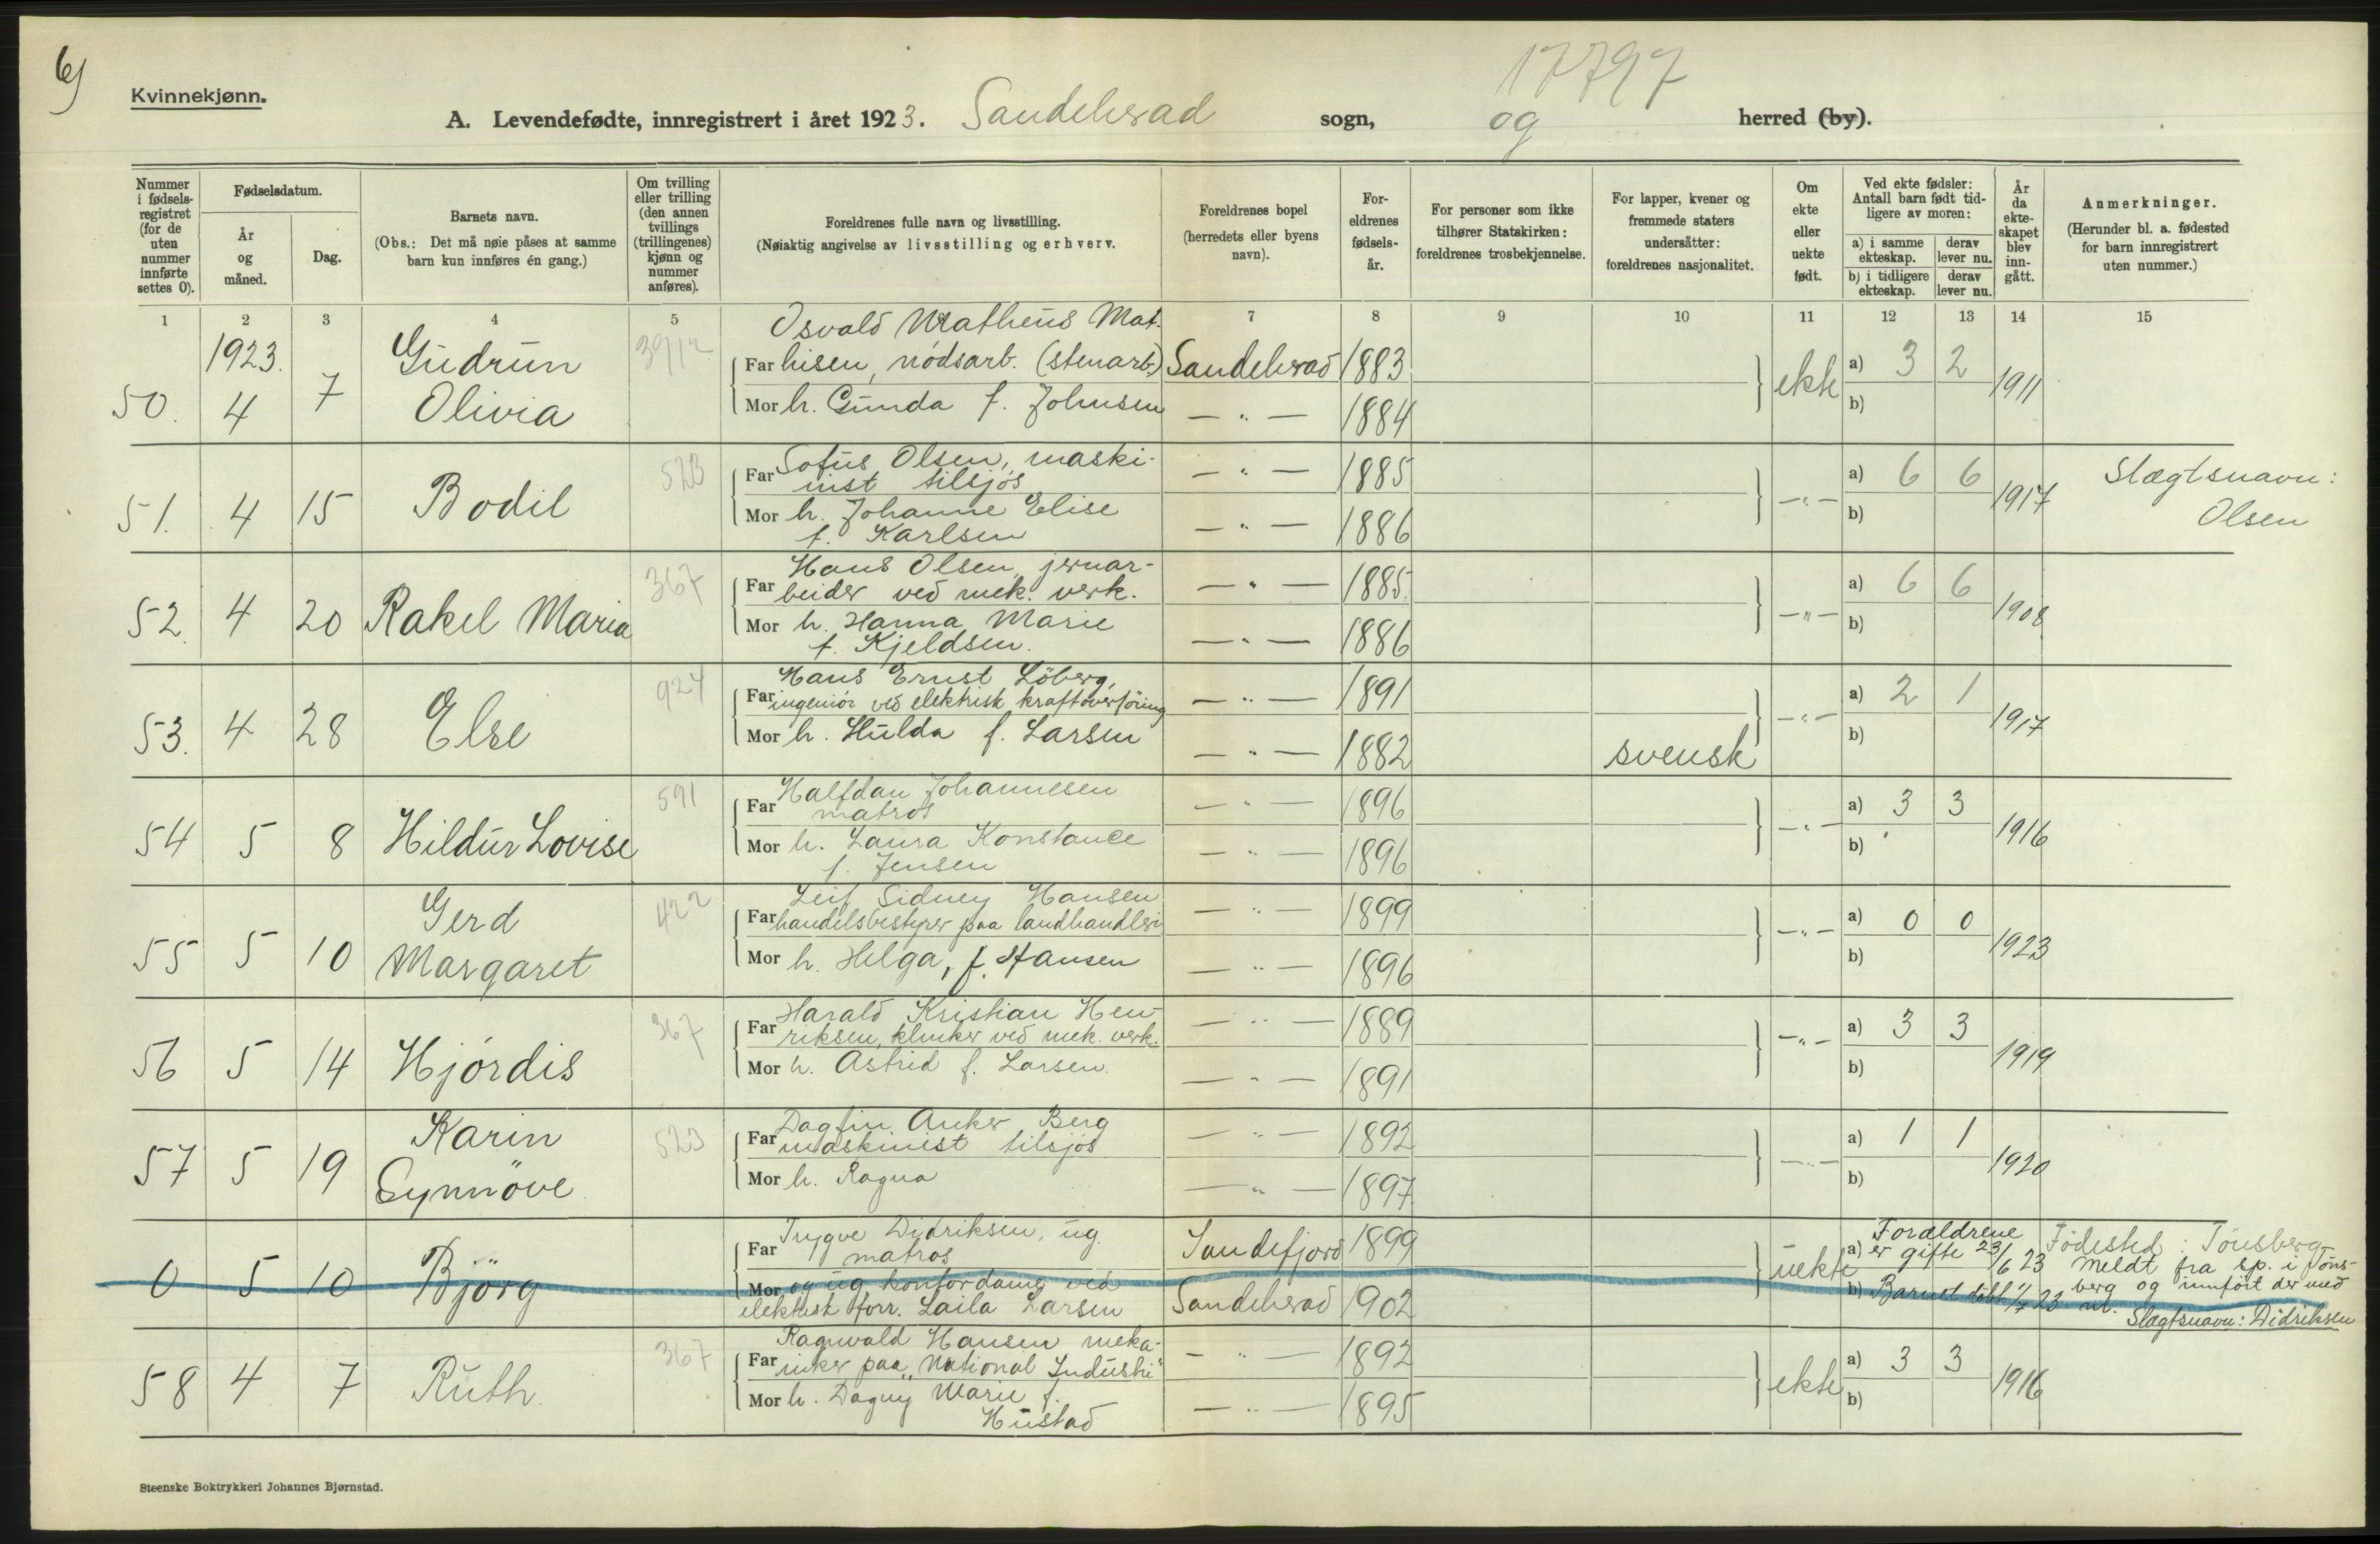 6)
Kvinnekjønn.
17797
A. Levendefødte, innregistrert i året 1923. Sandeherad sogn, og herred (by).
Nummer i fødselsregistret (for de uten nummer innførte settes 0).
Fødselsdatum.
År og måned.
Dag.
Barnets navn.
(Obs.: Det må nøie påses at samme barn kun innføres én gang.)
Om tvilling eller trilling (den annen tvillings (trillingenes) kjønn og nummer anføres).
Foreldrenes fulle navn og livsstilling.
(Nøiaktig angivelse av livsstilling og erhverv.
Foreldrenes bopel (herredets eller byens navn).
Foreldrenes fødselsår.
For personer som ikke tilhører Statskirken: foreldrenes trosbekjennelse.
For lapper, kvener og fremmede staters undersåtter: foreldrenes nasjonalitet.
Om ekte eller uekte født.
Ved ekte fødsler: Antall barn født tidligere av moren:
a) i samme ekteskap. derav lever nu.
b) i tidligere ekteskap. derav lever nu.
År da ekteskapet blev inngått.
Anmerkninger.
(Herunder bl. a. fødested for barn innregistrert uten nummer.)
1 2 3 4 5 7 8 9 10 11 12 13 14 15
50. 1923. 4 7 Gudrun Olivia
Osvald Matheus Mat-
Far hisen, nödsarb. (stenarb.) Sandeherad 1883
Mor h. Gunda f. Johnsen — " — 1884
ekte a) 3 2 b) 1911
51. 4 15 Bodil 523
Far Sofus Olsen, maski-
nist tilsjös — " — 1885
Mor h. Johanne Elise
f. Karlsen — " — 1886
— " — a) 6 6 b) 1917 Slægtsnavn:
Olsen
52. 4 20 Rakel Maria 367
Hans Olsen, jernar-
Far beider ved mek. verk. — " — 1885
Mor h. Hanna Marie
f. Kjeldsen. — " — 1886
— " — a) 6 6 b) 1908
53. 4 28 Else 924
Hans Ernst Löberg,
Far ingeniör ved elektrisk kraftoverföring — " — 1891
Mor h. Hulda f. Larsen — " — 1882 svensk
— " — a) 2 1 b) 1917
54 5 8 Hildur Lovise 591
Far Halfdan Johannesen
matros — " — 1896
Mor h. Laura Konstance
f. Jensen — " — 1896
— " — a) 3 3 b) 1916
55 5 10 Gerd Margaret 422
Leif Sidney Hansen
Far handelsbestyrer paa landhandleri — " — 1899
Mor h. Helga, f. Hansen — " — 1896
— " — a) 0 0 b) 1923
56 5 14 Hjördis 367
Harald Kristian Hen-
Far riksen, klinker ved mek. verk. — " — 1889
Mor h. Astrid f. Larsen. — " — 1891
— " — a) 3 3 b) 1919
57 5 19 Karin Synnöve 523
Dagfin Anker Berg
Far maskinist tilsjös — " — 1892
Mor h. Ragna — " — 1897
— " — a) 1 1 b) 1920
0 5 10 Björg
Far Trygve Didriksen, ug.
matros Sandefjord 1899
Mor og ug kontordame ved
elektrisk forr. Laila Larsen Sandeherad 1902
uekte a) Foræeldrene er gifte 23/6 23
b) Barnet döbt 1/7 23
Födested: Tönsberg
meldt fra sp. i Töns-
berg og innfört der med
nr. Slægtsnavn: Didriksen
58 4 7 Ruth. 367
Ragnvald Hansen meka-
Far niker paa „National Industri" — " — 1892
Mor h. Dagny Marie f.
Hustad — " — 1895
ekte a) 3 3 b) 1916
Steenske Boktrykkeri Johannes Bjørnstad.